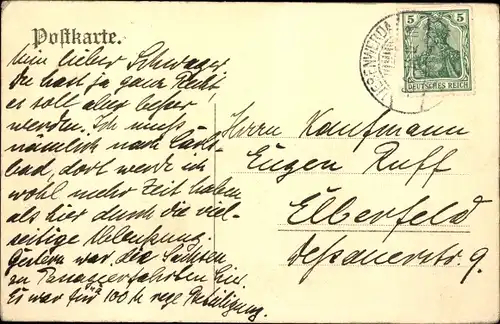 Postkarte.
Mein lieber Schwager
Du hast ja ganz Recht,
es soll aber besser
werden. Ich muß
nämlich nach Carls-
bad, dort werde ich
wohl mehr Zeit haben
als hier durch die viel-
seitige Ablenkung.
Gestern war die Sachsen
zu
hier.
Es war für 100 M rege Beteiligung.
5 5
DEUTSCHES REICH
Herrn Kaufmann
Eugen Ruff
Elberfeld
Dessauerstr. 9.